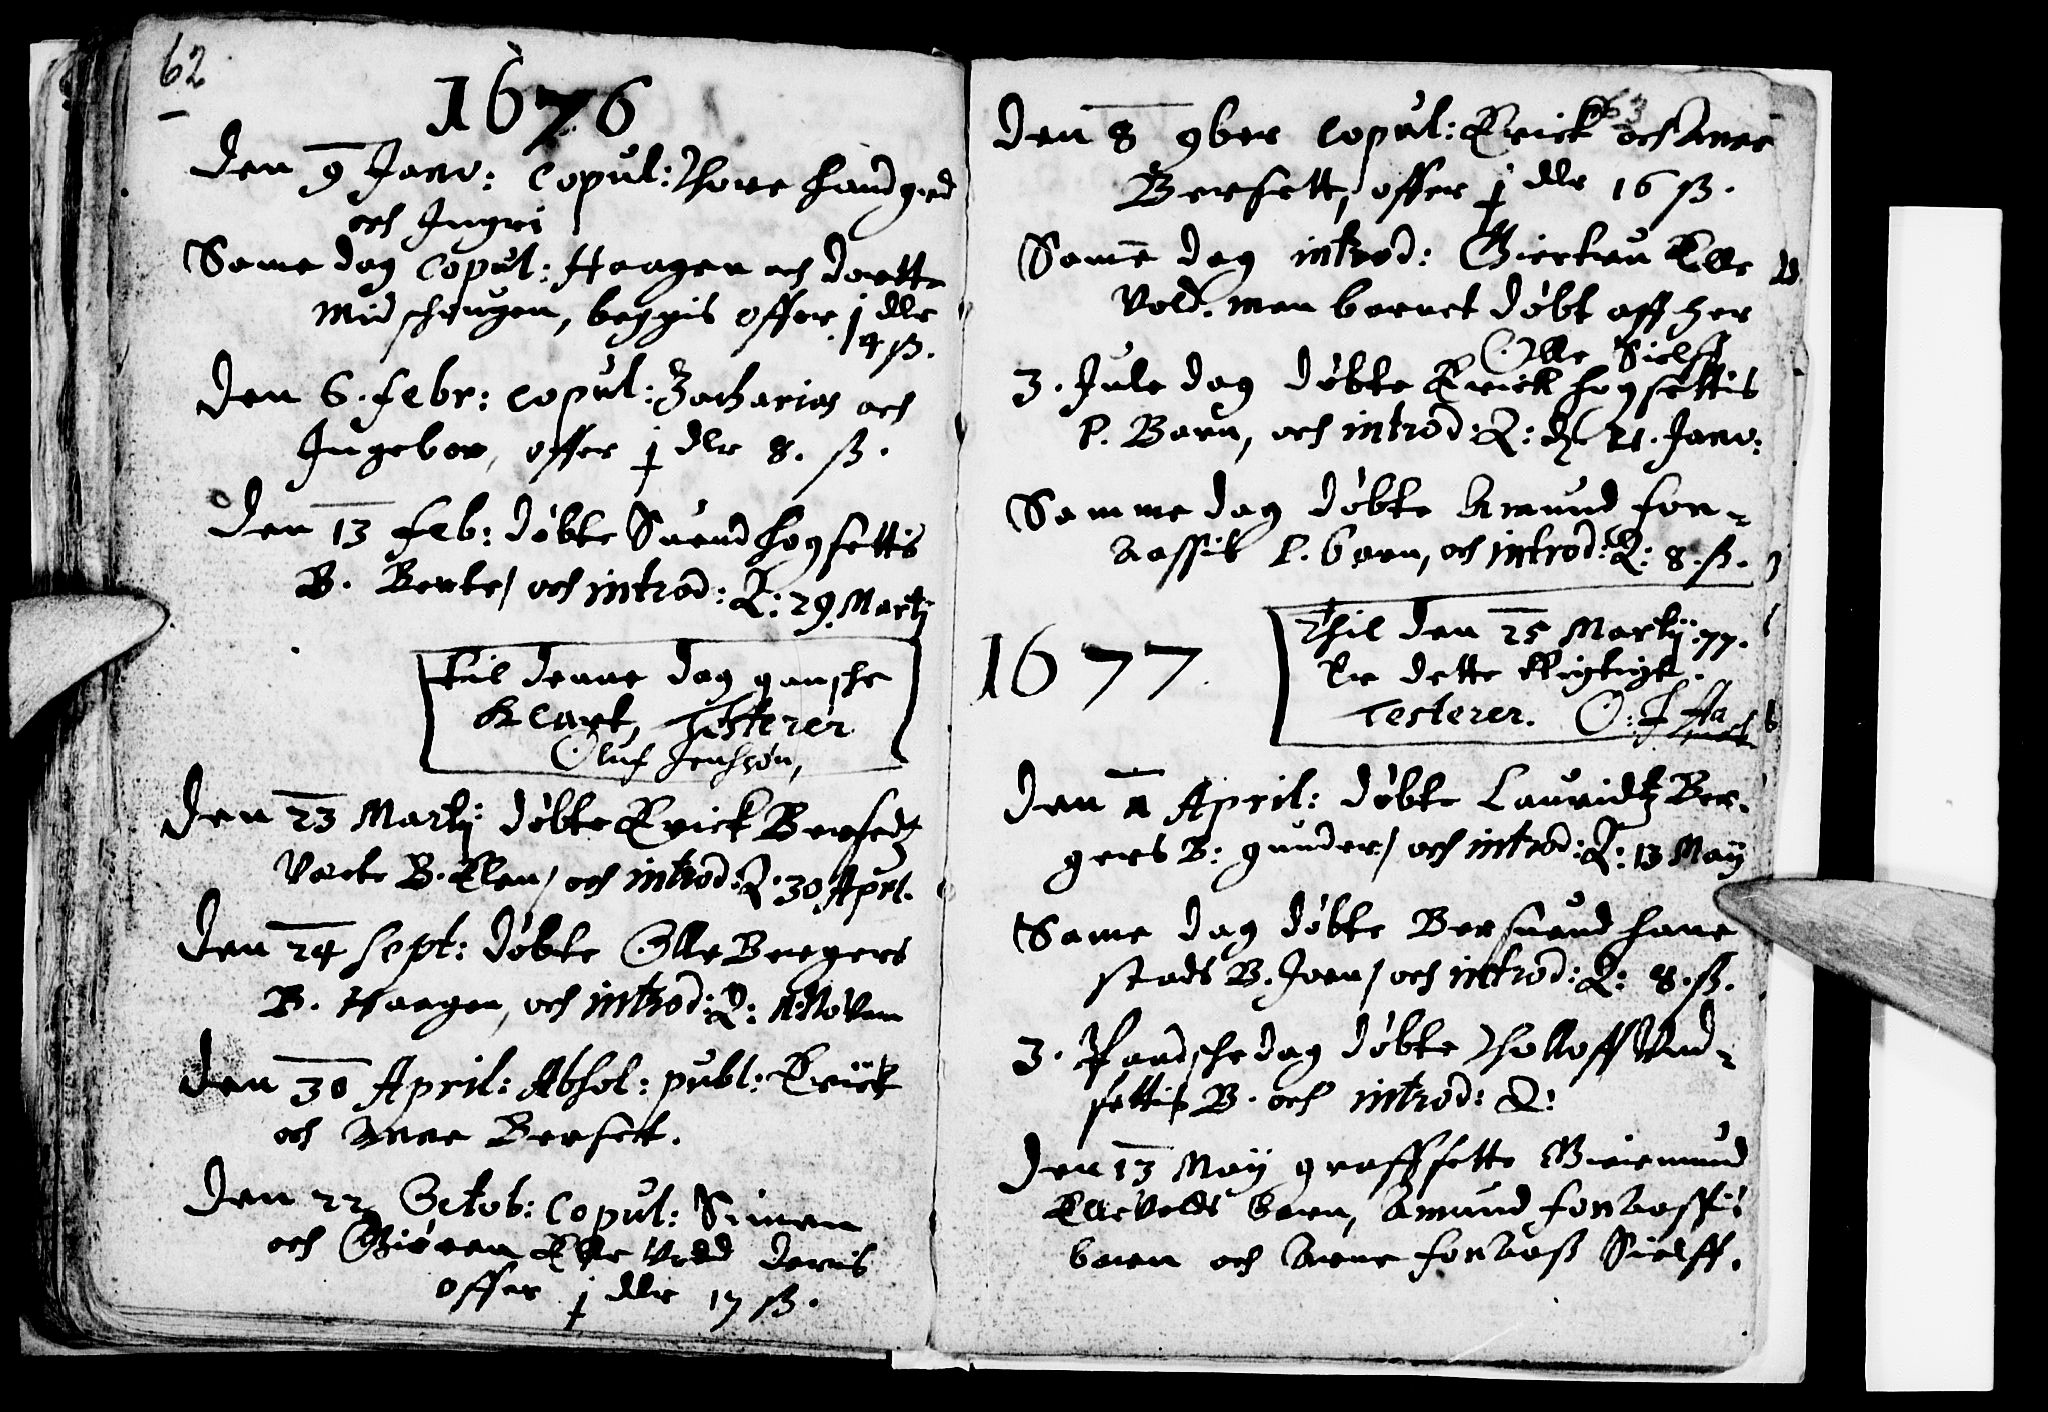 62
1676
Den 9 Janv: Copul: Thore handgrd
och Jngri
Same dag Copul: Haagen och dortte
Midschougen, beggis offer j dlr
14 ß.
Den 6. Febr: Copul: Zacharias och
Jngebor, offer j dlr 8. ß.
Den 13 Feb: döbte Suend hogsettis
B. Berte, och introd: Q: 29. Martij
til denne dag gansche
Klart, Testerer
Oluf Jenssøn,
Den 23 Martij döbte Erick Bersetz
B. Elen, och introd: Q. 30 Aprl.
Den 24 Sept: döbte Olle Bergers
B. Haagen, och introd: Q: Novem
Den 30 April: Absol: publ: Erick
och Anne Bersett.
Den 22 Octob: Copul: Simen
och Giøren Elle Vold deris
offer j dlr 17 ß.
63
Den 8 9ber Copul: Erick och Anne
Bersett, offer j dlr 16 ß.
Samē dag introd: Giertru Elle
Vold. men barnet döbt aff her
Olle Sielff
3. Jule dag döbte Erick hogsettis
P. Barn, och introd: Q: 21. Janv:
Samme dag döbte Amund for-
P. barn, och introd: Q: 8. ß.
1677
Thil den 25 Martij 77.
Er dette Rigtigt.
Testerer. O: J
Den April: döbte Lauridtz Ber-
gers B: gunder, och introd: Q: 13 Maij
Same dag döbte Bersuend hane
stads B. Joen, och introd: Q: 8. ß.
3. Paadsche dag döbte Tholloff Und-
settis B. och introd: Q:
Den 13 Maij graffsette Greimund
Ellevolds barn, Amund
barn och Anne Sielff.